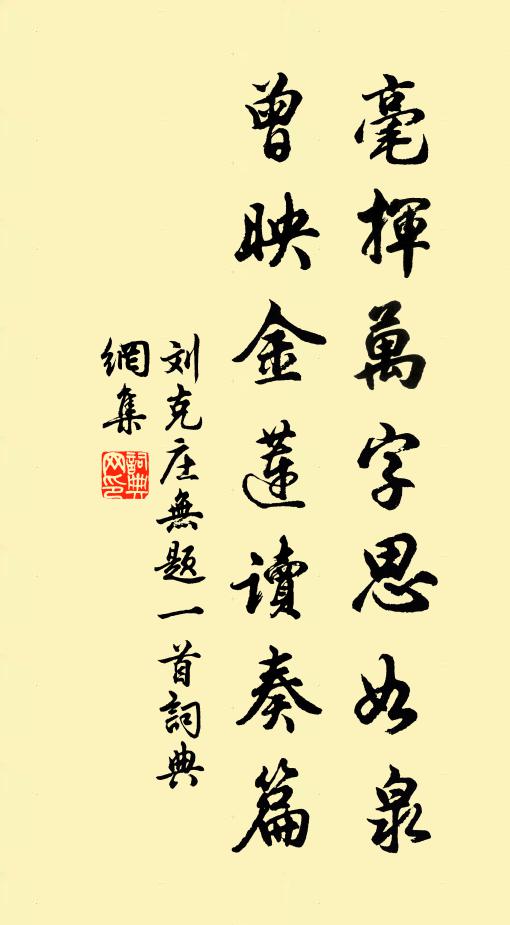 毫揮萬字思如泉
曾映金蓮讀奏篇
刘克庄無题一首詞典
網集
詞典
网印